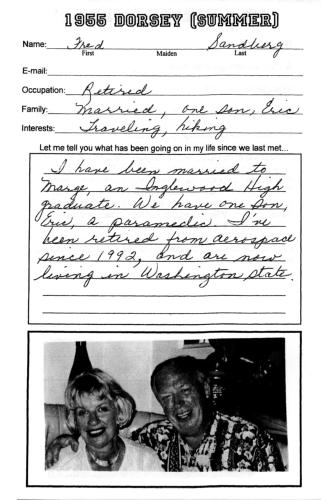 1955 DORSEY (SUMMER)
Name: Fred Sandberg
First Maiden Last
E-mail:
Occupation: Retired
Family: Married, one son, Eric
Interests: Traveling, hiking
Let me tell you what has been going on in my life since we last met...
I have been married to
Marge, an Inglewood High
graduate. We have one son,
Eric, a paramedic. I've
been retired from aerospace
since 1992, and are now
living in Washington State.